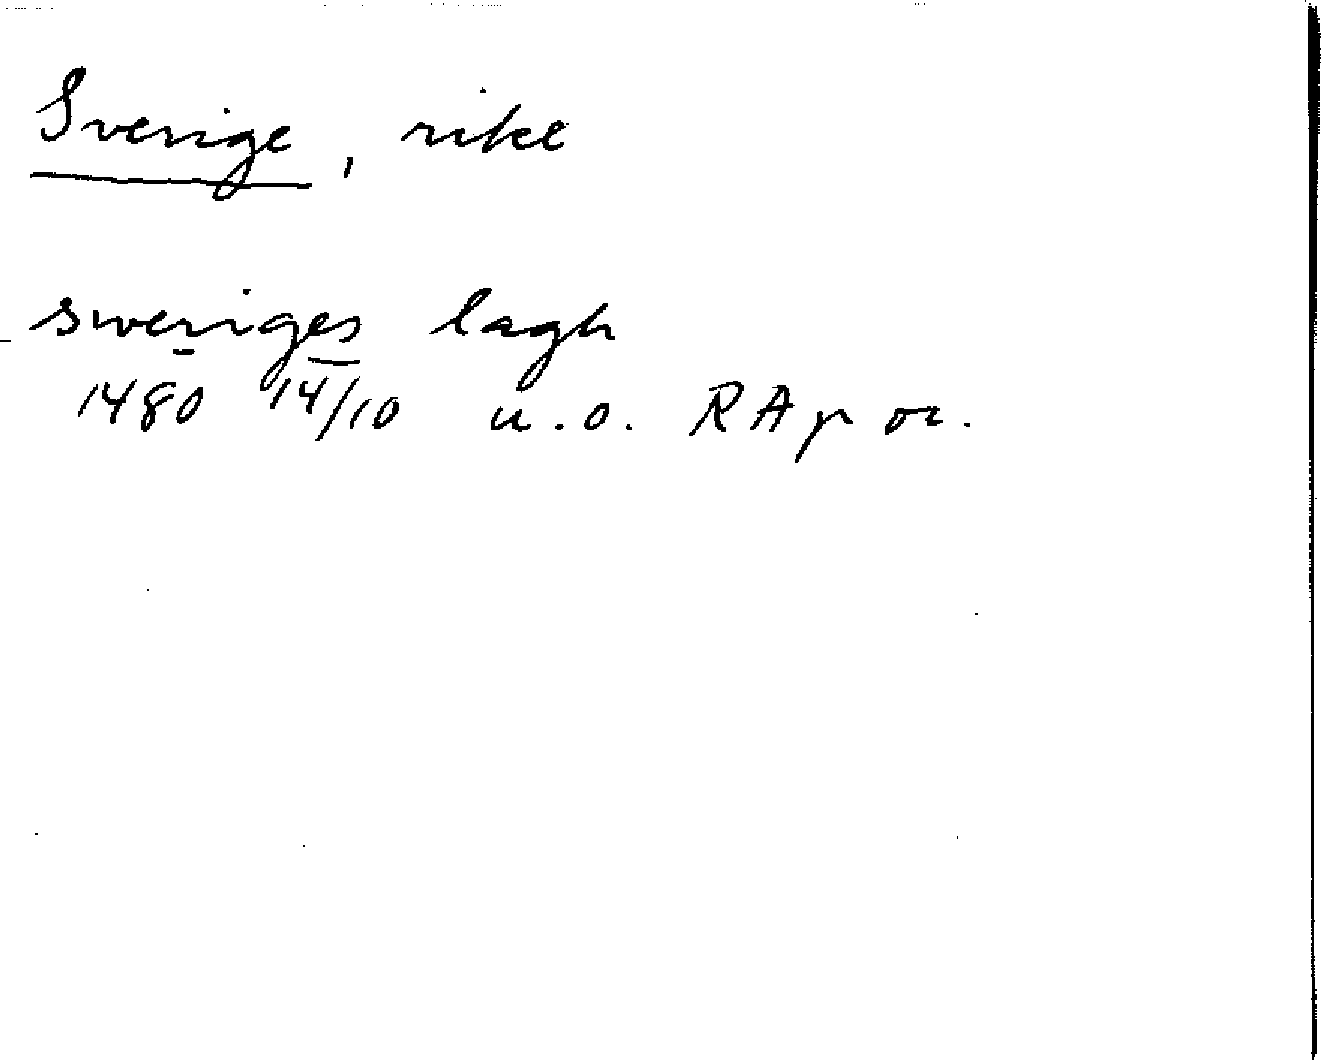 Sverige, rike
sweriges lagh
1480 14/10 u.o. RAp or.